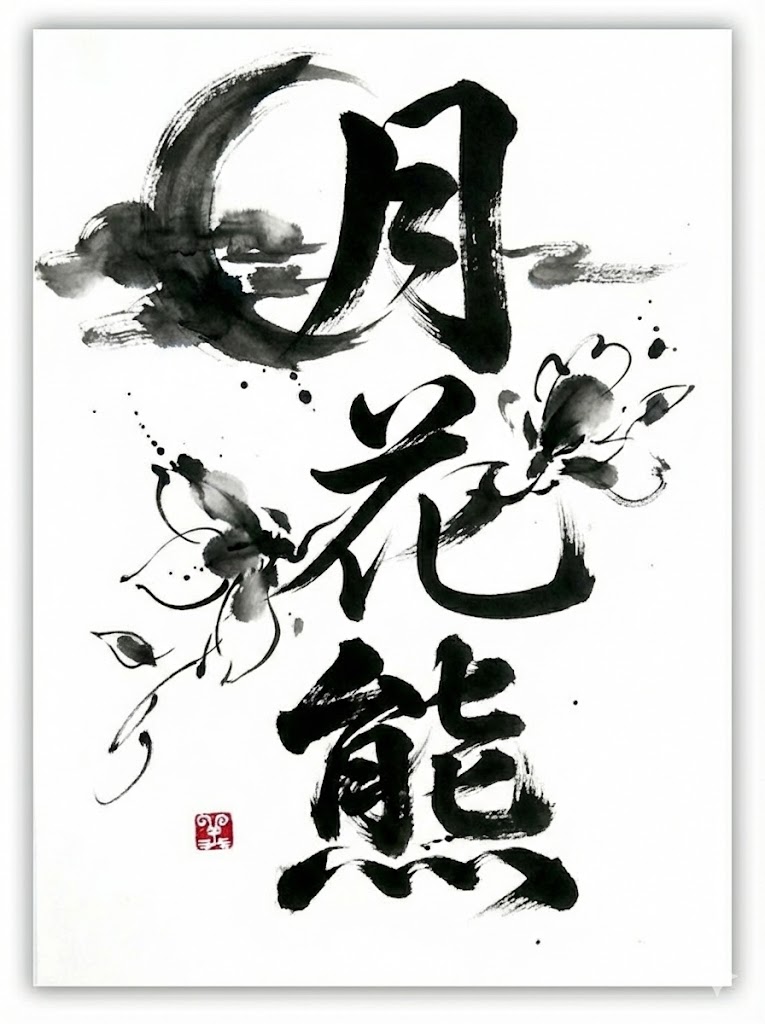 月花熊